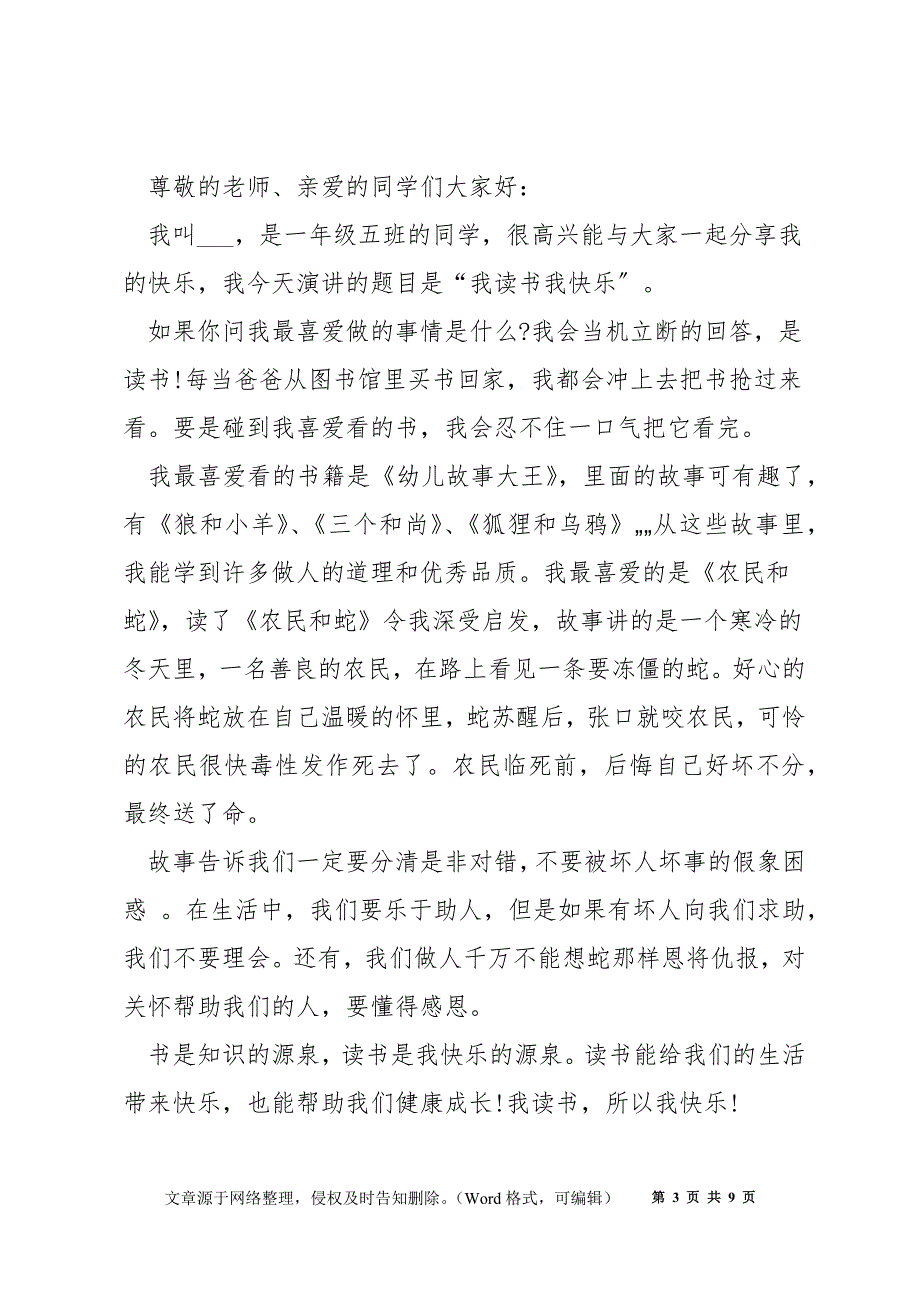 尊敬的老师、亲爱的同学们大家好：
我叫___，是一年级五班的同学，很高兴能与大家一起分享我
的快乐，我今天演讲的题目是“我读书我快乐〞。
如果你问我最喜爱做的事情是什么?我会当机立断的回答，是
读书!每当爸爸从图书馆里买书回家，我都会冲上去把书抢过来
看。要是碰到我喜爱看的书，我会忍不住一口气把它看完。
我最喜爱看的书籍是《幼儿故事大王》，里面的故事可有趣了，
有《狼和小羊》、《三个和尚》、《狐狸和乌鸦》„„从这些故事里，
我能学到许多做人的道理和优秀品质。我最喜爱的是《农民和
蛇》，读了《农民和蛇》令我深受启发，故事讲的是一个寒冷的
冬天里，一名善良的农民，在路上看见一条要冻僵的蛇。好心的
农民将蛇放在自己温暖的怀里，蛇苏醒后，张口就咬农民，可怜
的农民很快毒性发作死去了。农民临死前，后悔自己好坏不分，
最终送了命。
故事告诉我们一定要分清是非对错，不要被坏人坏事的假象困
惑 。在生活中，我们要乐于助人，但是如果有坏人向我们求助，
我们不要理会。还有，我们做人千万不能想蛇那样恩将仇报，对
关怀帮助我们的人，要懂得感恩。
书是知识的源泉，读书是我快乐的源泉。读书能给我们的生活
带来快乐，也能帮助我们健康成长!我读书，所以我快乐!
文章源于网络整理，侵权及时告知删除。（Word 格式，可编辑） 第 3 页 共 9 页